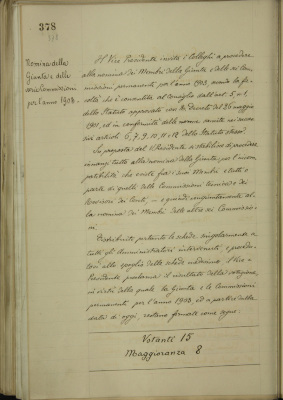 378
Nomina della
Giunta e delle
varie Commissioni
per l'anno 1903.
Il Vice Presidente invita i Colleghi a procedere
alla nomina dei Membri della Giunta e delle Com
missioni permanenti per l'anno 1903, avendo la fa-
coltà che è consentita al Consiglio dall'art. 5, n. 1,
dello Statuto approvato con R. Decreto del 26 maggio
1901, ed in conformità delle norme sancite nei succes
sivi articoli 6, 7, 9, 10, 11 e 12 dello Statuto stesso.
Su proposta del V. Presidente si stabilisce di procedere
innanzi tutto alla nomina della Giunta, per l'incom
patibilità che esiste fra i suoi Membri e tutto o
parte di quelli delle Commissioni tecnica e dei
Revisori dei conti, e quindi congiuntamente al
la nomina dei Membri delle altre Commissio-
ni.
Distribuite pertanto le schede singolarmente a
tutti gli Amministratori intervenuti e proceduto
allo spoglio delle schede medesime il Vice
Presidente proclama il risultato della votazione,
in virtù della quale la Giunta e le Commissioni
permanenti per l'anno 1903, ed a partire dalla
data di oggi, restano formate come segue:
Votanti 15
Maggioranza 8